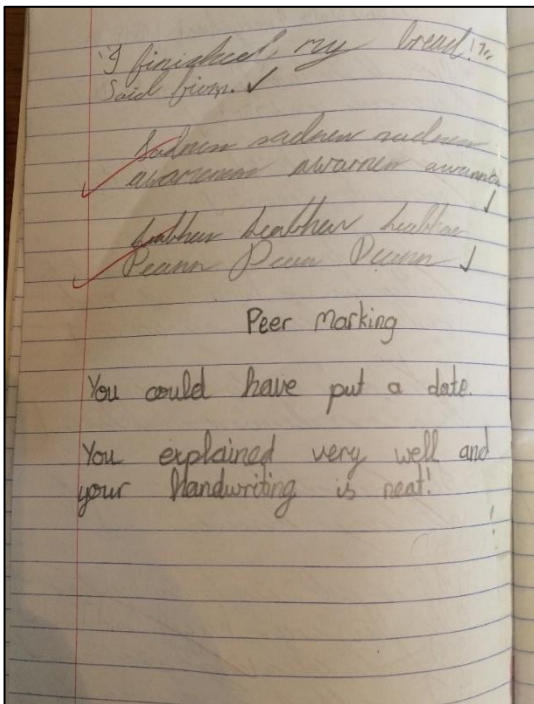 "I finished, my bread!"
Said finn.
Sadness sadness sadness
awareness awarness
leabhar leabhar leabhar
Peann Peann Peann
Peer Marking
You could have put a date.
You explained very well and
your handwriting is neat!